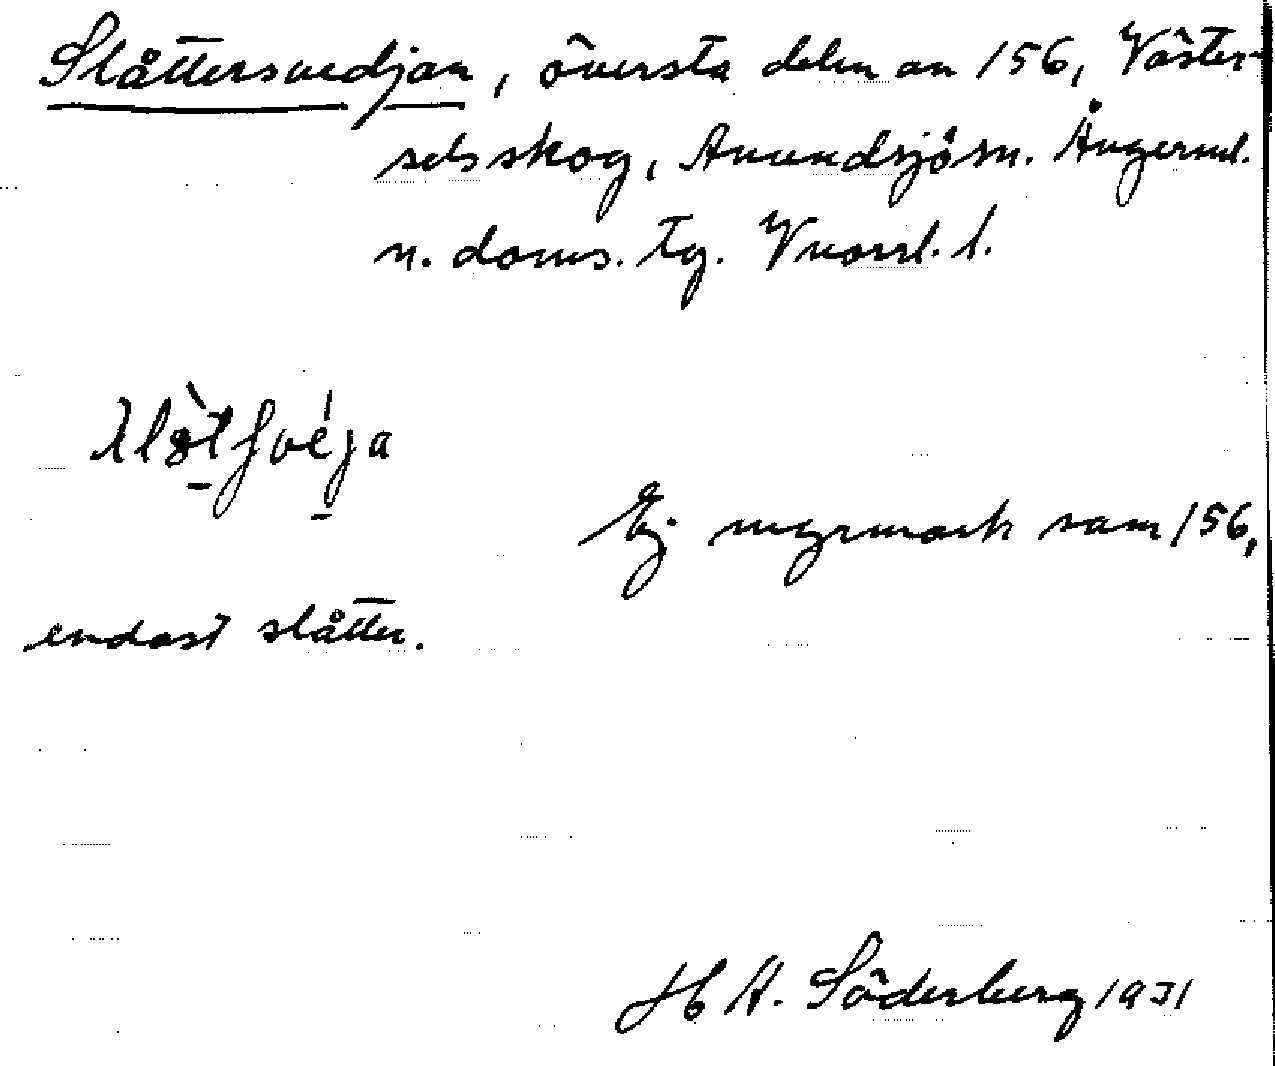 Slåttersvedjan, översta delen av 156, Väster-
selsskog, Anundsjö sn. Ångerml.
n. doms. tg. Vnorrl. l.
slòtʃvéja
Ej myrmark som 156,
endast slåtter.
H A. Söderberg 1931